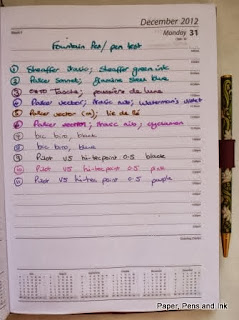 December 2012
Monday 31
Fountain Pen/ pen test
① Sheaffer Italic; Sheaffer green ink
② Parker Sonnet;
③ poussière de lune
④ Parker vector; italic nib; Waterman's violet
⑤ Parker vector (m); lie de thé
⑥ Parker vector; italic nib; cyclamen
⑦ bic biro, black
⑧ bic biro, blue
⑨ Pilot V5 hi-tecpoint 0.5 black
⑩ Pilot V5 hi-tecpoint 0.5 pink
⑪ Pilot V5 hi-tec point 0.5 purple
Paper, Pens and Ink